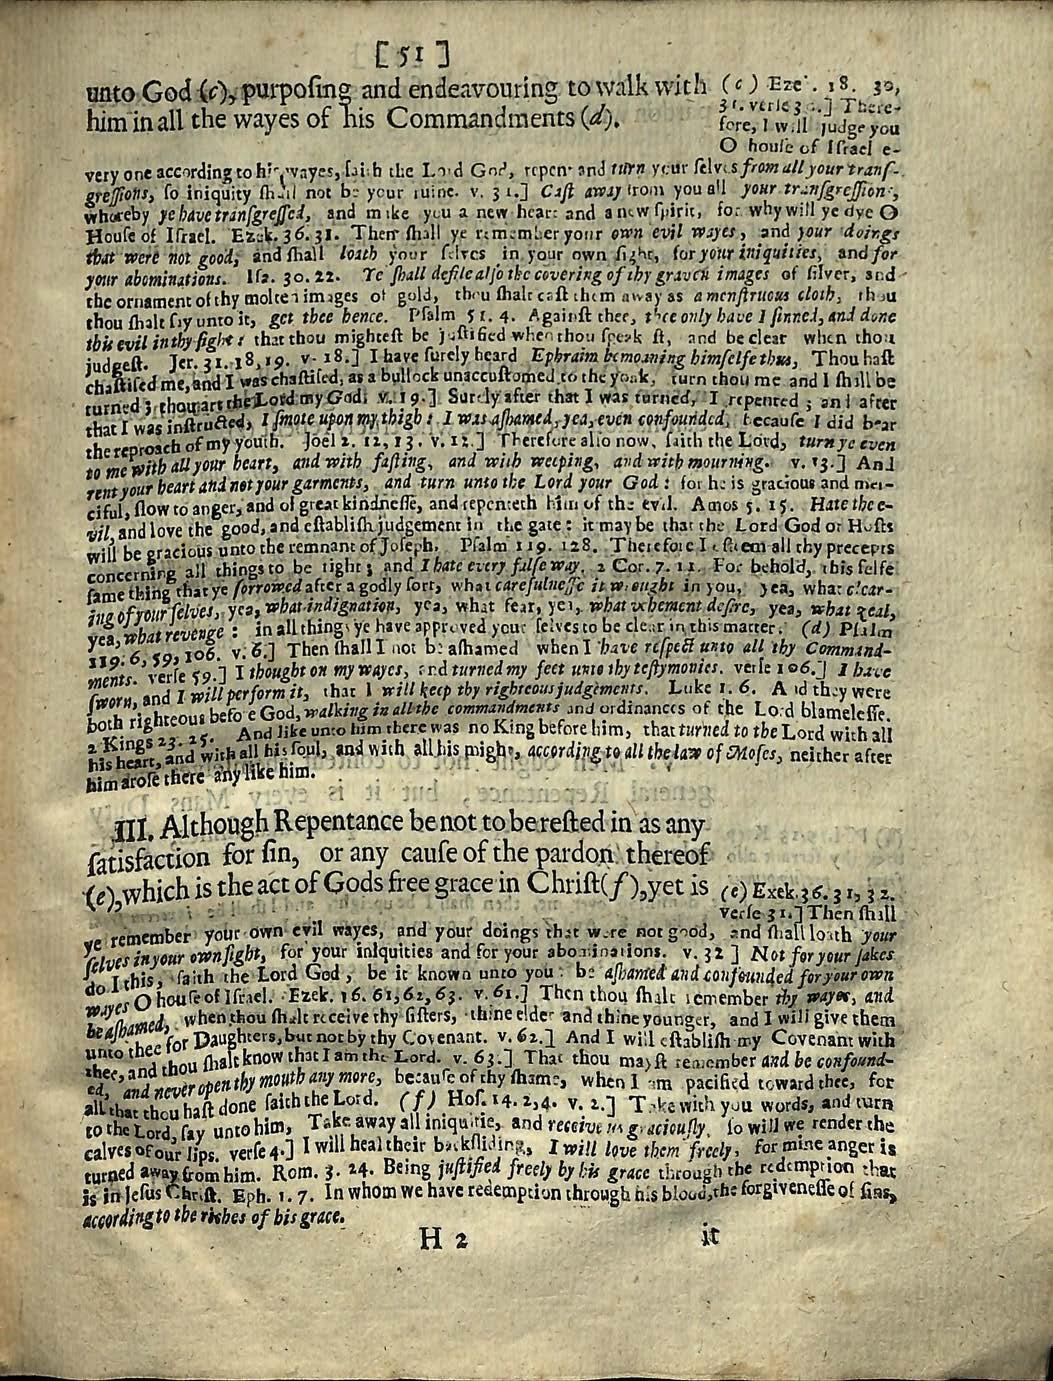 [ 51 ]
unto God (c), purposing and endeavouring to walk with
him in all the wayes of his Commandments (d).
(c) Eze. 18. 30,
31. verse 30.] There-
fore, I will judge you
O house of Israel e-
very one according to his wayes, saith the Lord God, repent and turn your selves from all your trans-
gressions, so iniquity shall not be your ruine. v. 31.] Cast away from you all your transgressions,
whereby ye have transgressed, and make you a new heart and a new spirit, for why will ye dye O
House of Israel. Ezek. 36. 31. Then shall ye remember your own evil wayes, and your doings
that were not good, and shall loath your selves in your own sight, for your iniquities, and for
your abominations. Isa. 30. 22. Ye shall defile also the covering of thy graven images of silver, and
the ornament of thy molten images of gold, thou shalt cast them away as a menstruous cloth, thou
thou shalt say unto it, get thee hence. Psalm 51. 4. Against thee, thee only have I sinned, and done
this evil in thy sight: that thou mightest be justified when thou speakest, and be clear when thou
judgest. Jer. 31. 18, 19. v. 18.] I have surely heard Ephraim bemoaning himselfe thus, Thou hast
chastised me, and I was chastised, as a bullock unaccustomed to the yoak, turn thou me and I shall be
turned; thou art the Lord my God. v. 19.] Surely after that I was turned, I repented; and after
that I was instructed, I smote upon my thigh: I was ashamed, yea, even confounded, because I did bear
the reproach of my youth. Joel 2. 12, 13. v. 12.] Therefore also now, saith the Lord, turn ye even
to me with all your heart, and with fasting, and with weeping, and with mourning. v. 13.] And
rent your heart and not your garments, and turn unto the Lord your God: for he is gracious and mer-
ciful, slow to anger, and of great kindnesse, and repenteth him of the evil. Amos 5. 15. Hate the e-
vil, and love the good, and establish judgement in the gate: it may be that the Lord God of Hosts
will be gracious unto the remnant of Joseph. Psalm 119. 128. Therefore I esteem all thy precepts
concerning all things to be right; and I hate every false way. 2 Cor. 7. 11. For behold, this selfe
same thing that ye sorrowed after a godly sort, what carefulnesse it wrought in you, yea, what clear-
ing of your selves, yea, what indignation, yea, what fear, yea, what vehement desire, yea, what zeal,
yea, what revenge: in all things ye have approved your selves to be clear in this matter. (d) Psalm
119. 6, 59, 106. v. 6.] Then shall I not be ashamed when I have respect unto all thy Command-
ments. verse 59.] I thought on my wayes, and turned my feet unto thy testymonies. verse 106.] I have
sworn, and I will perform it, that I will keep thy righteous judgements. Luke 1. 6. And they were
both righteous before God, walking in all the commandments and ordinances of the Lord blamelesse.
2 Kings 23. 25. And like unto him there was no King before him, that turned to the Lord with all
his heart, and with all his soul, and with all his might, according to all the law of Moses, neither after
him arose there any like him.
III. Although Repentance be not to be rested in as any
satisfaction for sin, or any cause of the pardon thereof
(e), which is the act of Gods free grace in Christ (f), yet is
(e) Exek. 36. 31, 32.
verse 31.] Then shall
ye remember your own evil wayes, and your doings that were not good, and shall loath your
selves in your own sight, for your iniquities and for your abominations. v. 32] Not for your sakes
do I this, saith the Lord God, be it known unto you: be ashamed and confounded for your own
wayes O house of Israel. Ezek. 16. 61, 62, 63. v. 61.] Then thou shalt remember thy wayes, and
be ashamed, when thou shalt receive thy sisters, thine elder and thine younger, and I will give them
unto thee for Daughters, but not by thy Covenant. v. 62.] And I will establish my Covenant with
thee, and thou shalt know that I am the Lord. v. 63.] That thou mayst remember and be confound-
ed, and never open thy mouth any more, because of thy shame, when I am pacified toward thee, for
all that thou hast done saith the Lord. (f) Hos. 14. 2, 4. v. 2.] Take with you words, and turn
to the Lord, say unto him, Take away all iniquitie, and receive us graciously, so will we render the
calves of our lips. verse 4.] I will heal their backsliding, I will love them freely, for mine anger is
turned away from him. Rom. 3. 24. Being justified freely by his grace through the redemption that
is in Jesus Christ. Eph. 1. 7. In whom we have redemption through his blood, the forgivenesse of sins,
according to the riches of his grace.
H 2 it